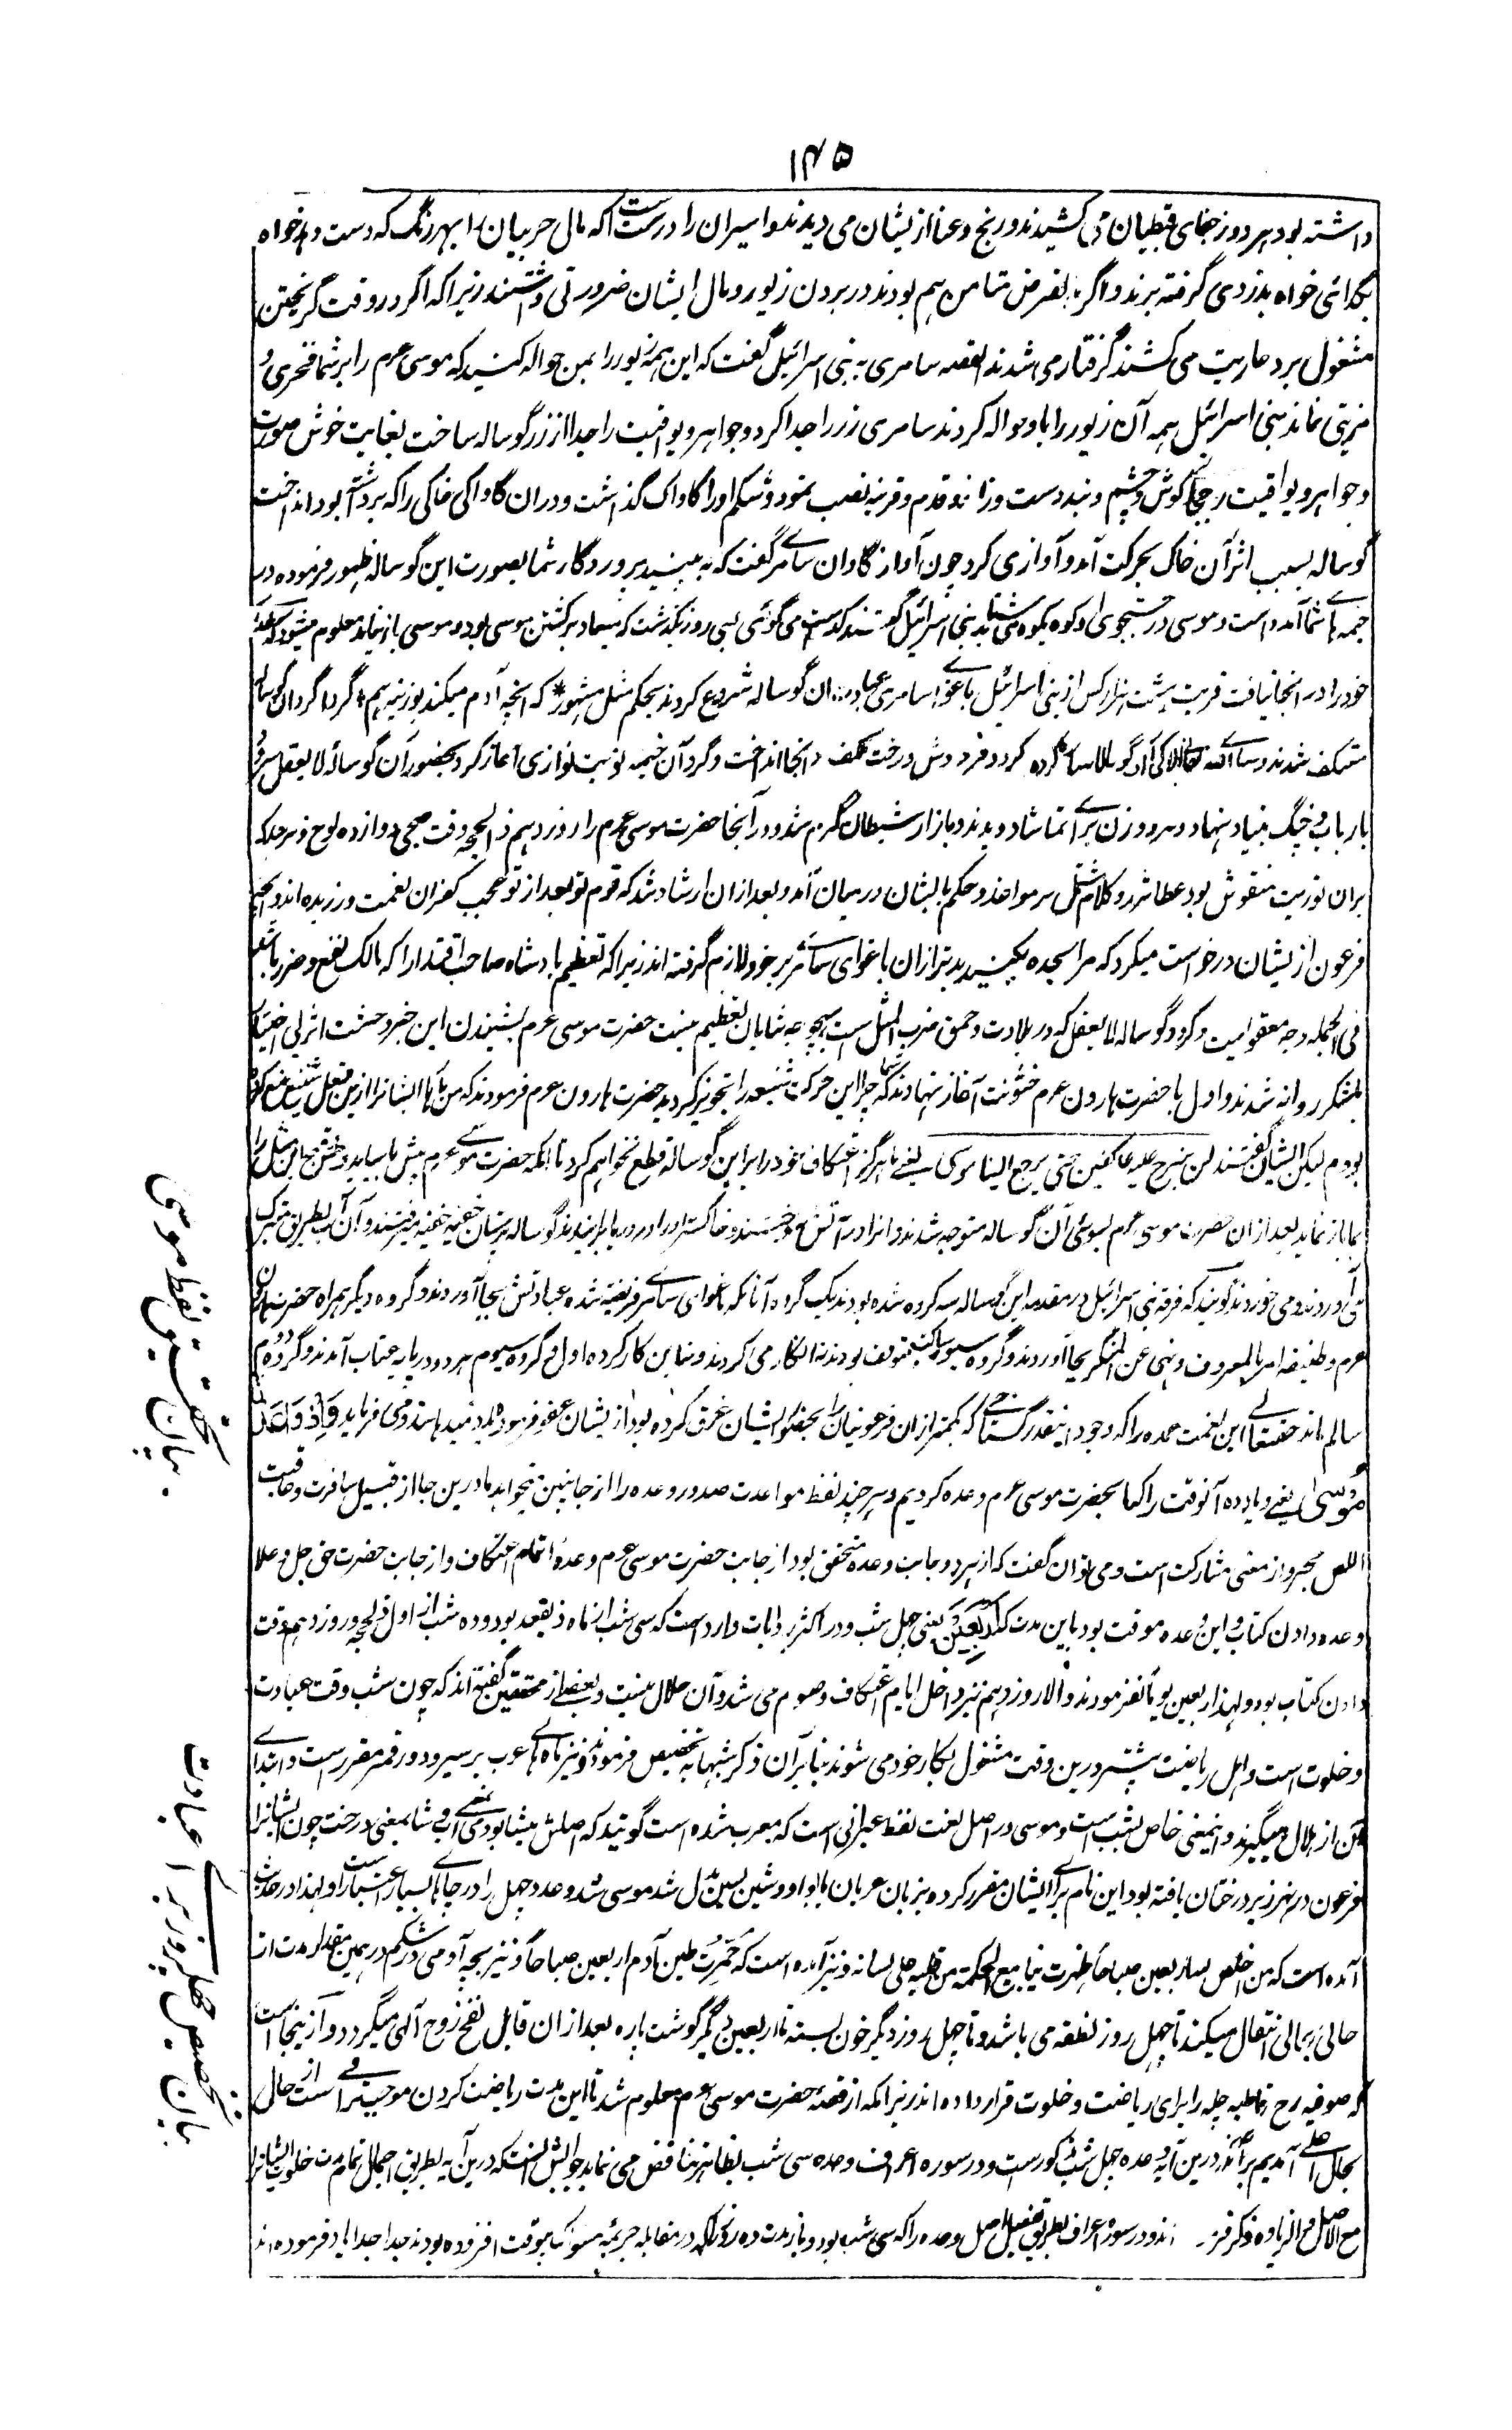 ۱۴۵
داشته بود هر روز جفای قبطیان می کشیدند و رنج و عنا از یشان می دیدند و اسیران را درست است که مال حربیان را بهر رنگ که دست دهد خواه
بگدائی خواه بدزدی گرفته برند و اگر بالفرض متامن هم بودند در بردن زیور و مال ایشان ضرورتی داشتند زیرا که اگر در وقت گریختن
مشغول برد عاریت می گشتند گرفتار می شدند القصه سامری به بنی اسرائیل گفت که این همه زیور را بمن حواله کنید که موسی عرم را بر شما فخری و
مزیتی نماند بنی اسرائیل همه آن زیور را باو حواله کردند سامری زر را جدا کرد و جواهر و یواقیت را جدا از زر گوساله ساخت بغایت خوش صورت
و جواهر و یواقیت را بجای گوش و چشم و بند دست و زانو و قدم و قرنه نصب نمود و شکم او را کاواک گذاشت و دران کاواکی خاکی را که برداشته بود انداخت
گوساله بسبب اثر آن خاک بحرکت آمد و آوازی کرد چون آواز گاوان سامری گفت که به بینید پروردگار شما بصورت این گوساله ظهور فرموده در
خیمه های شما آمده است و موسی در جستجوی او کوه بکوه می شتابد بنی اسرائیل گفتند که راست می گوئی سی روز بگذشت که میعاد برگشتن موسی بود و موسی باز نیامد معلوم میشود که خدای
خود را در انجا نیافت قریب هشت هزار کس از بنی اسرائیل باغوای سامری عبادت آن گوساله شروع کردند بحکم مثل مشهور * که انچه آدم میکند بوزینه هم * گرداگرد آن گوساله
معتکف شدند و سامری
بارباب و چنگ بنیاد نهاد و مرد و زن برای تماشا دویدند و بازار شیطان گرم شد و در آنجا حضرت موسی عرم را روز دهم ذالحجه وقت صبح دوازده لوح زبرجد که
بران توریت منقوش بود عطا شد و کلام مشتمل بر مواخذه و حکم بالیشان درمیان آمد و بعد از ان ارشاد شد که قوم تو بعد از تو عجب کفران نعمت ورزیده اند و انچه
فرعون از یشان درخواست میکرد که مرا سجده بکنید بدتر ازان باغوای سامری بر خود لازم گرفته اند زیرا که تعظیم بادشاه صاحب اقتدار را که مالک نفع و ضرر باشد
فی الجمله وجه معقولیت دگرد و گوساله لا یعقل که در بلادت و حمق ضرب المثل است بهیچ وجه شایان تعظیم نیست حضرت موسی عرم بشنیدن این خبر وحشت اثر بی اختیار
بلشکر روانه شدند و اول با حضرت هارون عرم خشونت آغاز نهادند که شما چرا این حرکت شنیعه را تجویز کردید حضرت هارون عرم فرمودند که من بارها ایشانرا ازین فعل شنیع منع کرده
بودم لیکن ایشان گفتند لن نبرح علیه عاکفین حتی یرجع الینا موسی یعنے ما هرگز اعتکاف خود را بر این گوساله قطع نخواهیم کرد تا انکه حضرت موسی عرم پیش ما بیاید
بما باز نماید بعد ازان حضرت موسی عرم بسوی آن گوساله متوجه شدند و انرا در آتش سوختند و خاکستر او را در دریا پرانیدند گوساله پرستان خفیه خفیه میرفتند و آن آب بطریق تبرک
می آوردند و می خوردند گویند که فرقه بنی اسرائیل در مقدمه این گوساله سه گروه شده بودند یک گروه آنانکه باغوای سامری فریفته شده عبادتش بجا آوردند و گروه دیگر همراه حضرت هارون
عرم وظیفه امر بالمعروف و نهی عن المنکر بجا آوردند و گروه سیوم ساکت متوقف بودند نه انکار می کردند و نه این کار کرده اول و گروه سیوم هر دو در پایه عتاب آمدند و گروه دوم
سالم ماند حقتعالی این نعمت عمده را که وجود اینقدر گستاخی که کمتر ازان فرعونیان را بحضور ایشان غرق کرده بود از یشان عفو فرمود یاد میدهانند و می فرماید وَإِذْ وَاعَدْنَا
مُوسَىٰ یعنے و یاد ده آنوقت را که ما بحضرت موسی عرم وعده کردیم و هر چند لفظ مواعدت صدور وعده را از جانبین میخواهد اما درین جا از قبیل سافرت و عاقبت
اللص مجرد از معنی مشارکت است و می توان گفت که از هر دو جانب وعده متحقق بود از جانب حضرت موسی عرم وعده اتمام اعتکاف و از جانب حضرت حق جل و علا
وعده دادن کتاب و این وعده موقت بود باین مدت که أَرْبَعِينَ یعنی چهل شب و در اکثر روایات وارد است که سی شب از ماه ذیقعد بود و ده شب از اول ذالحجه و روز دهم وقت
دادن کتاب بود و لهذا اربعین یوماً نفرمودند و الا روز دهم نیز داخل ایام اعتکاف و صوم می شد و آن حلال نیست و بعضے از محققین گفته اند که چون شب وقت عبادت
و خلوت است و اهل ریاضت بیشتر درین وقت مشغول بکار خود می شوند بنابر آن ذکر شبها به تخصیص فرمودند و نیز ماه های عرب بر سیر و دور قمر مقرر است و ابتدای
آن از هلال میگیرند و اینمعنی خاص بشب است و موسی در اصل لغت لفظ عبرانی است که معرب شده است گویند که اصلش میشا بود می بمعنے آب و شا بمعنی درخت چون ایشانرا
فرعون در نهر زیر درختان یافته بود این نام برای ایشان مقرر کرده بزبان عربان یا بواو و شین بسین بدل شد موسی شد و عدد چهل را در جاهای بسیار اعتبار است و لهذا در حدیث
آمده است که من اخلص لله اربعین صباحاً ظهرت ینابیع الحکمة من قلبه علی لسانه و نیز آمده است که خَمَّرْتُ طین آدم اربعین صباحاً و نیز بچه آدمی در شکم در همین مقدار مدت از
حالی بحالی انتقال میکند تا چهل روز نطفه می باشد و تا چهل روز دیگر خون بسته تا اربعین دیگر گوشت پاره بعد ازان قابل نفخ روح آلهی میگردد و از ینجا است
که صوفیه رح قاطبه چله را برای ریاضت و خلوت قرار داده اند زیرا انکه از قصهٔ حضرت موسی عرم معلوم شد تا این مدت ریاضت کردن موجب ترقی است از حالی
بحالی اعلے آمدیم برآنکه درین آیه وعده چهل شب مذکور است و در سوره اعراف وعده سی شب بظاهر تناقض می نماید جوابش انست که درین آیه بطریق اجمال تمام مدت خلوت ایشانرا
مع الاصل و الزیاده ذکر فرموده اند و در سوره اعراف بطریق تفصیل اصل وعده را که سی شب بود و باز مدت ده روز را که در مقابله جریمه مسواک بموقت افزوده بودند جدا جدا یاد فرموده اند
بیان تحقیق لفظ موسی
بیان تخصیص چهل روز برای عبادت